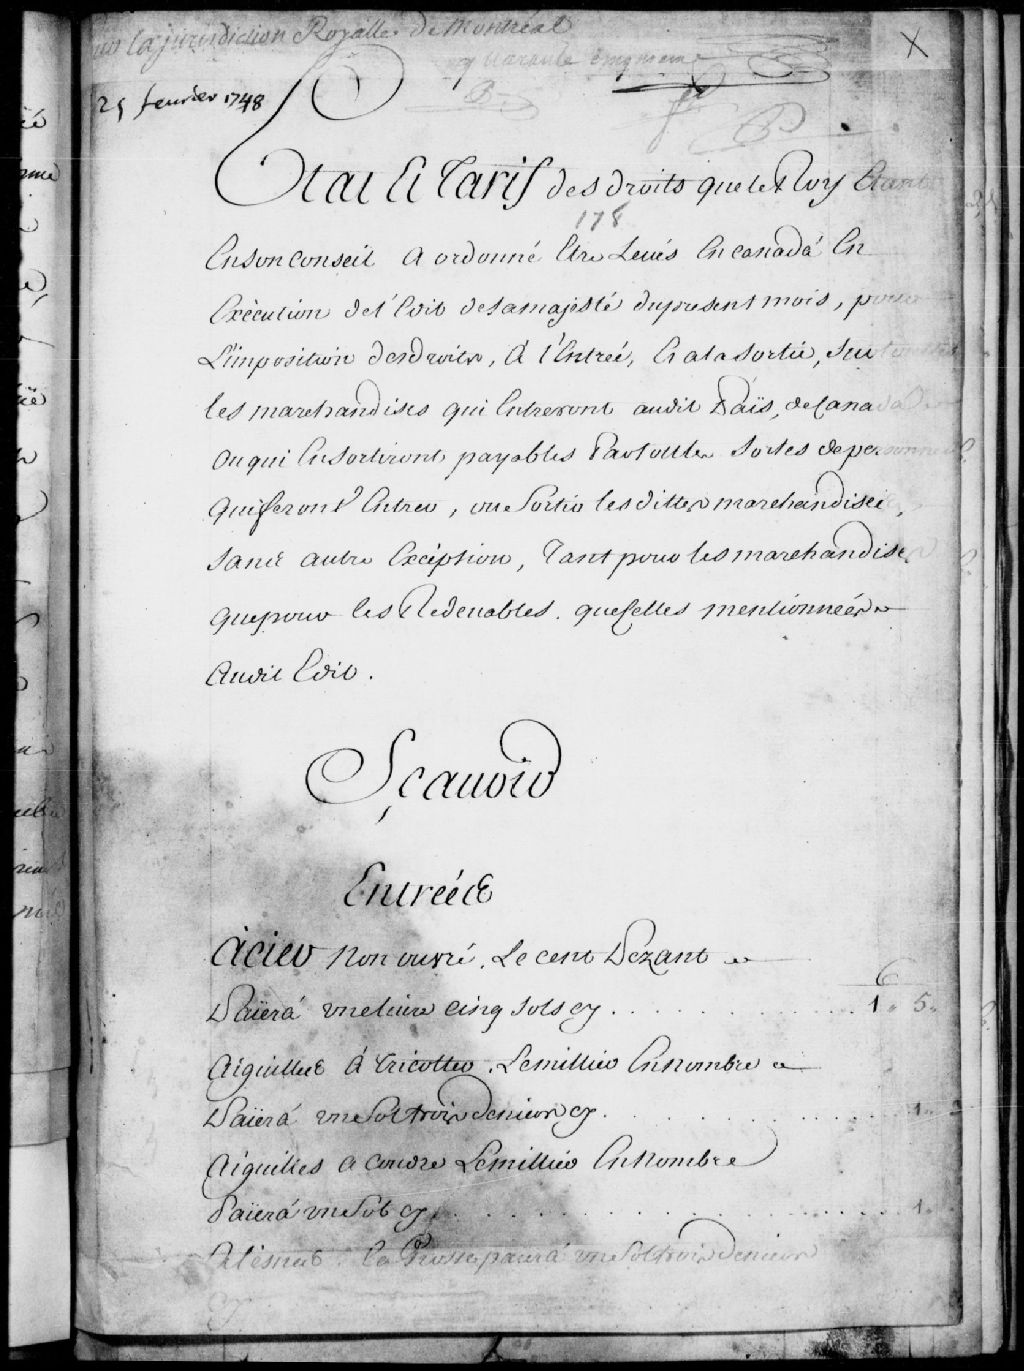 la jurisdiction Royalle de Montréal
25 fevrier 1748
Etat Et Tarif des droits que le Roy Etant
178
En son Conseil a ordonné Etre Levés En Canada En
Exècution de l'Edit de sa majesté du present mois, pour
L'imposition des droits, à l'Entrée, Et a la sortie, sur toutes
les marchandises qui Entreront audit Païs, de Canada
ou qui En sortiront payables Par toutes sortes de personnes
qui feront Entrer, ou Sortir les dittes marchandises,
sans autre Excéption, Tant pour les marchandises
que pour les Redevables. que Celles mentionnées
audit Edit.
Sçavoir
Entreées
Acier Non ouvré. Le cent Pezant
6
Païera une livre cinq sols cy . . . . . . . . . . . . 1 " 5 "
Aiguilles à Tricotter. Le millier En Nombre
Païera une Sol trois deniers cy . . . . . . . . . . . . 1 "
Aiguilles a Coudre Le millier En Nombre
Païera une Sol cy . . . . . . . . . . . . 1 "
Alesnes. la Grosse paiera une Sol trois deniers
cy